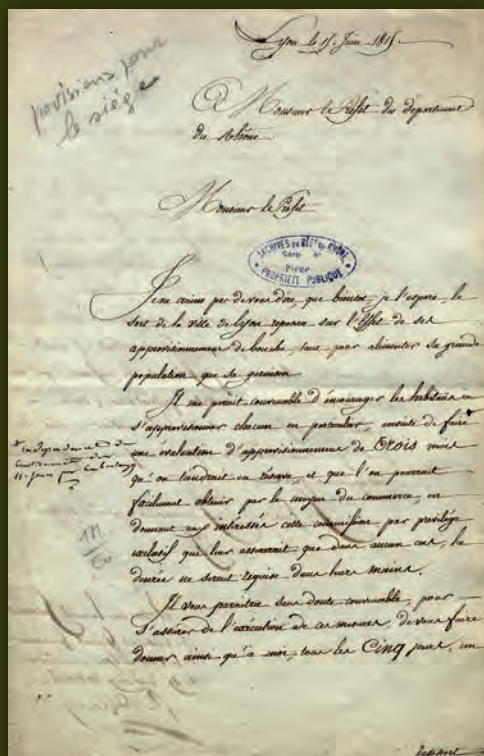 Lyon le 15 Juin 1815
provisions pour
le siége
A Monsieur le Préfet du département
du Rhône
Monsieur le Préfet
ARCHIVES DU DÉPT DU RHÔNE
Série
Pièce
PROPRIÉTÉ PUBLIQUE
Je ne crains pas de vous dire, que bientot, je l'espère, le
sort de la ville de Lyon reposera sur l'effet de ses
approvisionnemens de bouche, tant pour alimenter sa grande
population que sa garnison
Il me parait convenable d'encourager les habitans à
s'approvisionner chacun en particulier, ensuite de faire
une évaluation d'approvisionnemens de Trois mois
qu'on tiendrait en réserve et que l'on pourrait
facilement obtenir par le moyen du commerce, en
donnant aux intéressés cette commission par privilége
exclusif que leur assurerait que dans aucun cas, la
denrée ne serait requise dans leurs mains.
Il vous paraitra sans doute convenable, pour
s'assurer de l'exécution de ces mesures, de vous faire
donner ainsi qu'à moi, tous les Cinq jours, un
rapport